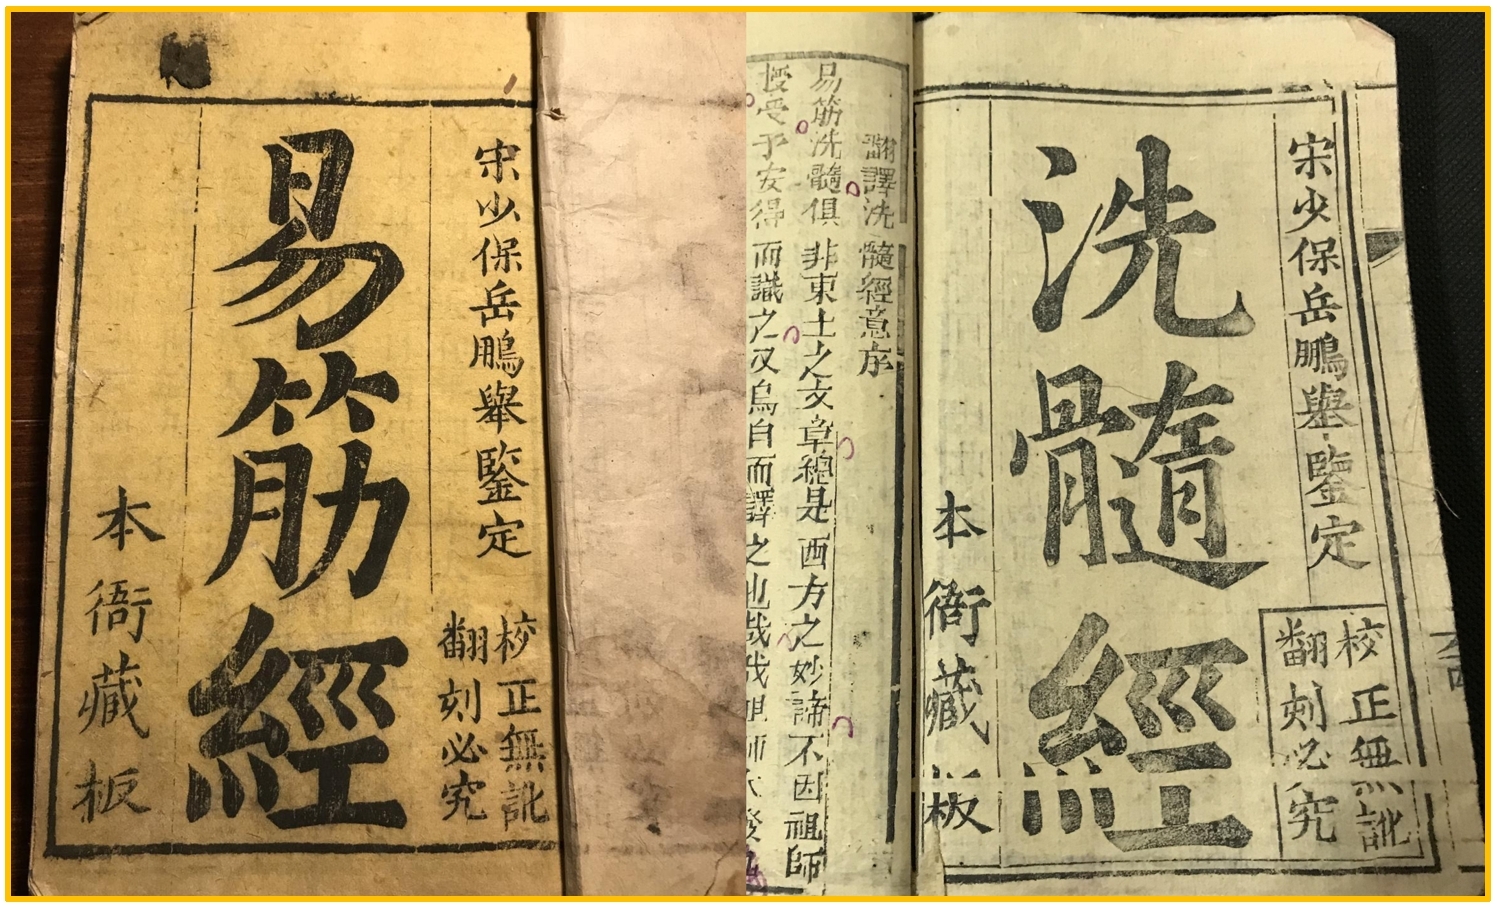 宋少保岳鵬舉鑒定
校正無訛
翻刻必究
易筋經
本衙藏板
宋少保岳鵬舉鑒定
校正無訛
翻刻必究
洗髓經
本衙藏板
翻譯洗髓經意序
易筋洗髓俱非東土之文章總是西方之妙諦不因祖師
授受予安得而識之又烏自而譯之也哉我祖師大發